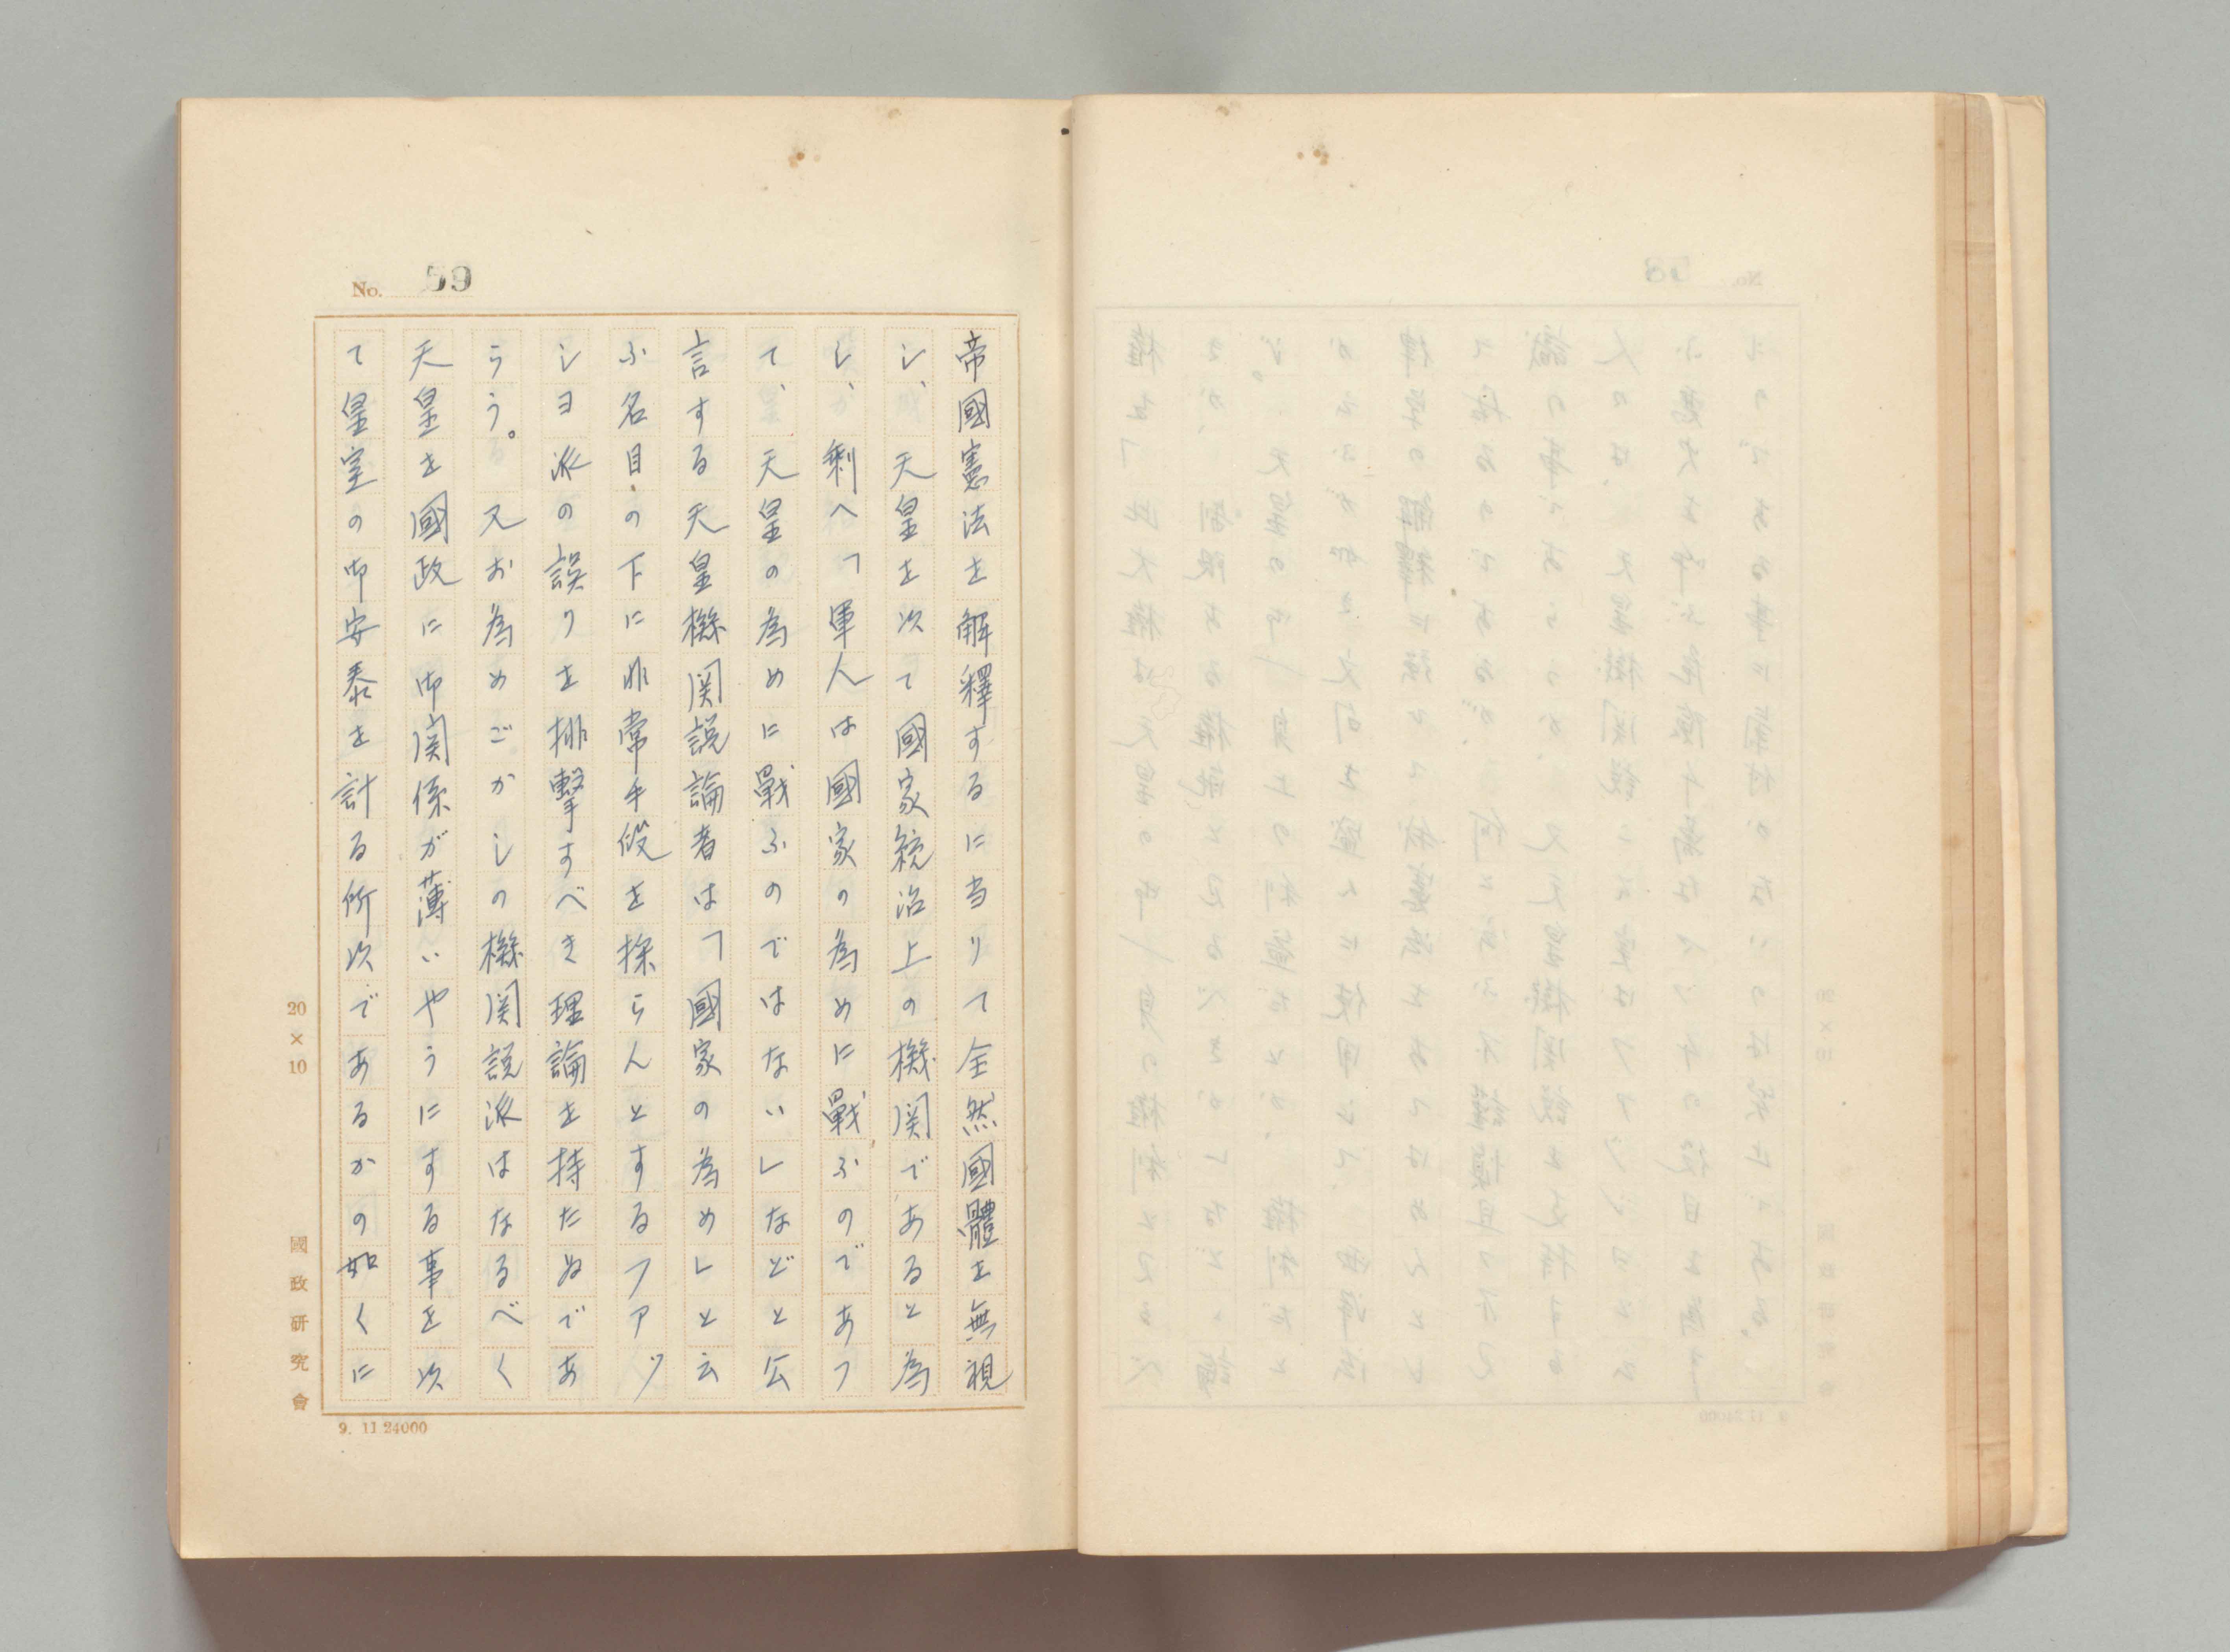 No. 59
帝國憲法を解釋するに当りて全然國體を無視
し、天皇を以て國家統治上の機関であると為
し、剰へ「軍人は國家の為めに戰ふのであつ
て、天皇の為めに戰ふのではない」などと公
言する天皇機関説論者は「國家の為め」と云
ふ名目の下に非常手段を採らんとするファッ
ショ派の誤りを排撃すべき理論を持たぬであ
らう。又お為めごかしの機関説派はなるべく
天皇を國政に御関係が薄いやうにする事を以
て皇室の御安泰を計る所以であるかの如くに
20×10
國政研究會
9. 11.24000